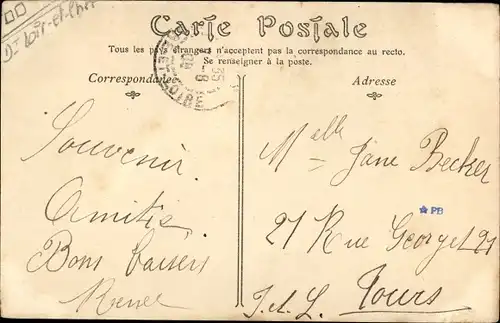 Dt Loir-et-Cher
Carte Postale
Tous les pays étrangers n'acceptent pas la correspondance au recto.
Se renseigner à la poste.
Correspondance
Adresse
Souvenir
Amitié
Bons baisers
Renée
Melle Jane Becker
PB
21 Rue Georget 21
I. et L. Tours